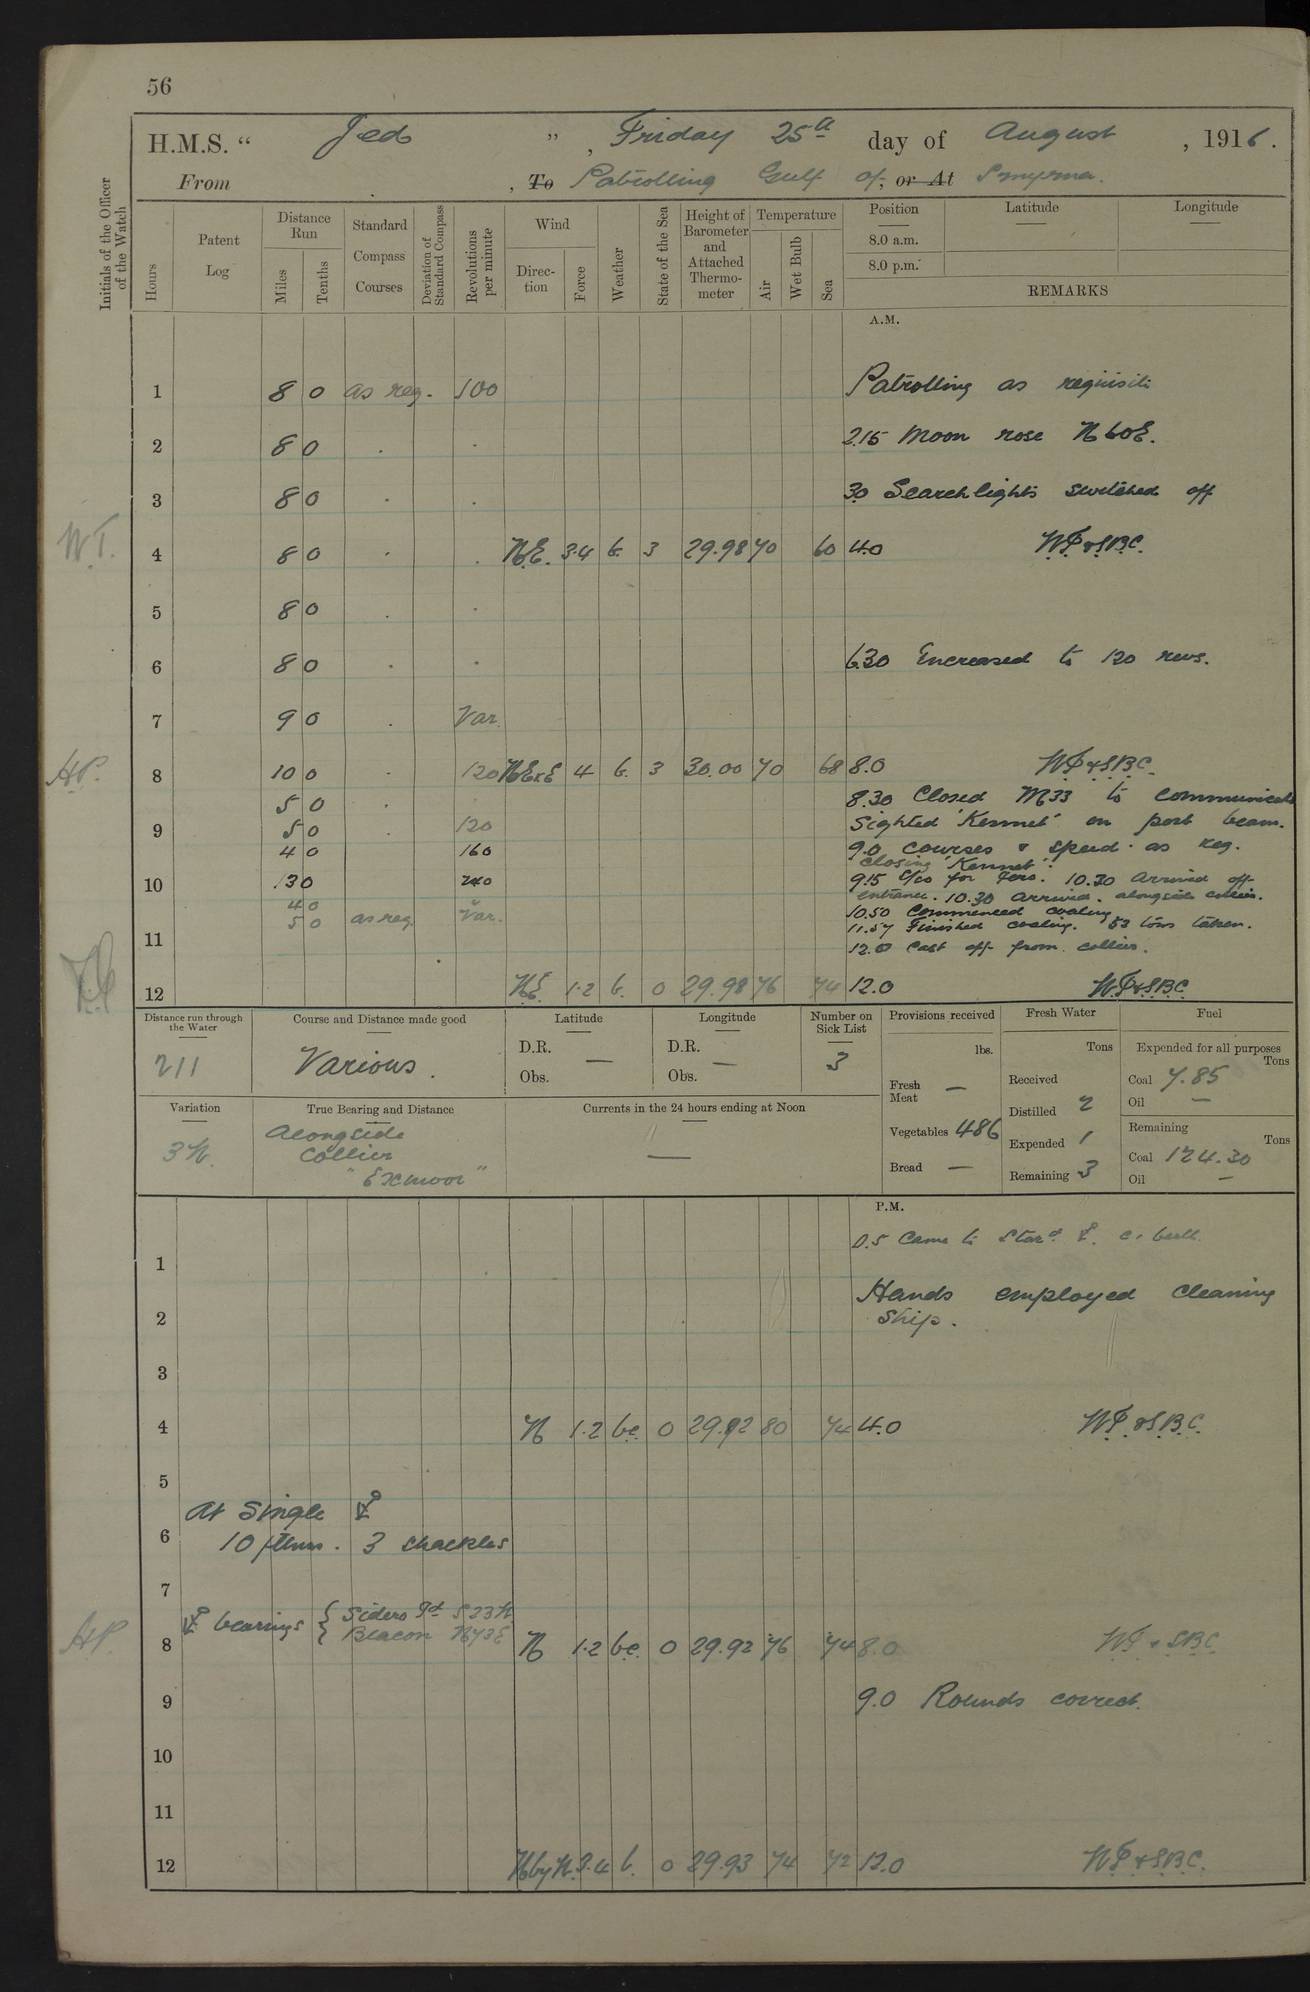 56
H.M.S. “ Jed ” , Friday 25th day of August , 1916.
From , To Patrolling Gulf of, or At Smyrna.
Initials of the Officer of the Watch
Hours
Patent Log
Distance Run
Miles
Tenths
Standard Compass Courses
Deviation of Standard Compass
Revolutions per minute
Wind
Direction
Force
Weather
State of the Sea
Height of Barometer and Attached Thermometer
Temperature
Air
Wet Bulb
Sea
Position
8.0 a.m.
8.0 p.m.
Latitude
Longitude
REMARKS
A.M.
1 8 0 as req. 100 Patrolling as requisite
2 8 0 . . 2.15 Moon rose N60E.
3 8 0 . . 3.0 Searchlights switched off
W.T. 4 8 0 . . N.E. 3.4 b. 3 29.98 70 60 4.0 W.P. & S.B.C.
5 8 0 . .
6 8 0 . . 6.30 Increased to 120 revs.
7 9 0 . Var.
8 10 0 . 120 NExE 4 b. 3 30.00 70 68 8.0 W.P. & S.B.C.
5 0 . 8.30 Closed M33 to communicate
9 5 0 . 120 Sighted 'Kennet' on port beam.
4 0 160 9.0 Courses & speed as req.
closing 'Kennet'.
10 13 0 240 9.15 C/co for Jero. 10.30 Arrived off
4 0 entrance. 10.30 Arrived alongside collier.
5 0 as req. Var. 10.50 Commenced coaling
11 11.57 Finished coaling. 53 tons taken.
12.0 Cast off from collier.
12 NE 1.2 b. 0 29.98 76 74 12.0 W.P. & S.B.C.
Distance run through the Water
211
Course and Distance made good
Various.
Latitude
D.R. —
Obs.
Longitude
D.R. —
Obs.
Number on Sick List
3
Provisions received
lbs.
Fresh Meat —
Vegetables 486
Bread —
Fresh Water
Tons
Received
Distilled 2
Expended 1
Remaining 3
Fuel
Expended for all purposes
Tons
Coal 7.85
Oil —
Remaining
Tons
Coal 124.30
Oil —
Variation
3W.
True Bearing and Distance
Alongside
Collier
"Exmoor"
Currents in the 24 hours ending at Noon
—
P.M.
0.5 Came to Stard ⚓.
1
Hands employed cleaning
2 ship.
3
4 N 1.2 bc. 0 29.92 80 74 4.0 W.P. & S.B.C.
5
At Single ⚓
6 10 fthms. 3 shackles
7
⚓ bearings { Sidero Id S23W
{ Beacon N73E
8 N 1.2 bc. 0 29.92 76 74 8.0 W.P. & S.B.C.
9 9.0 Rounds correct.
10
11
12 NbyW. 3.4 b. 0 29.93 74 72 12.0 W.P. & S.B.C.